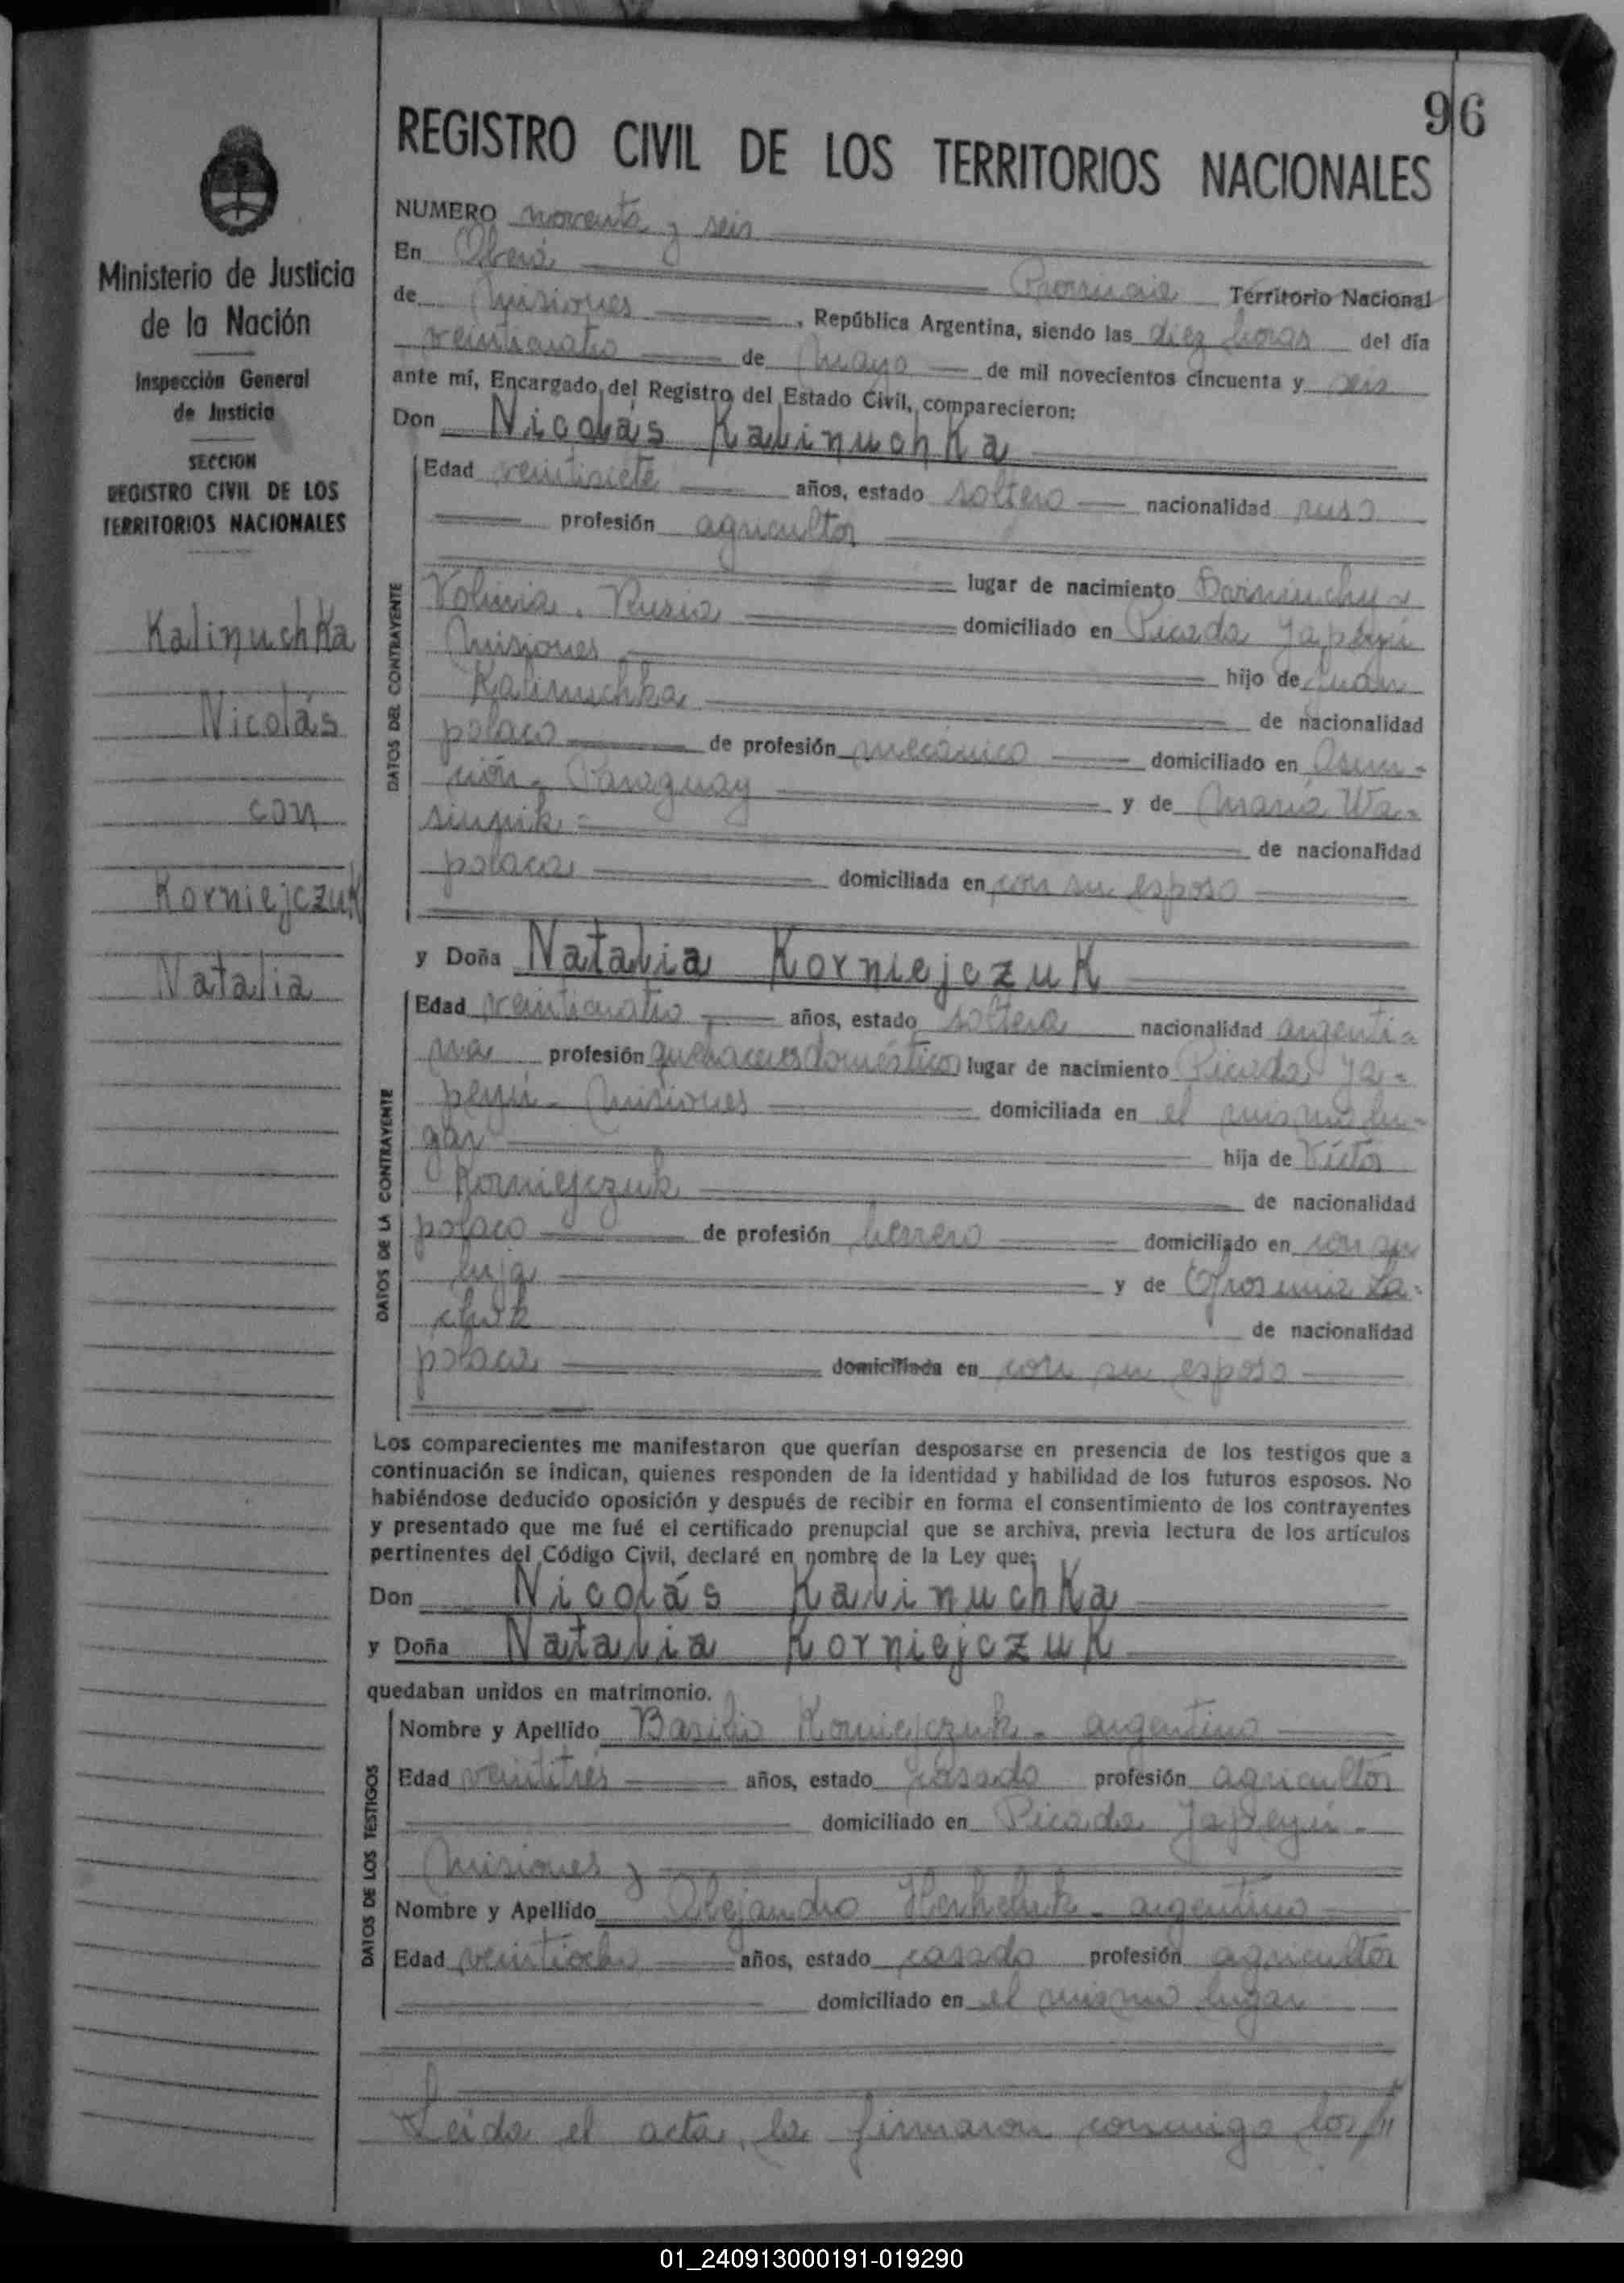 96
REGISTRO CIVIL DE LOS TERRITORIOS NACIONALES
Ministerio de Justicia
de la Nación
Inspección General
de Justicia
SECCION
REGISTRO CIVIL DE LOS
TERRITORIOS NACIONALES
Kalinuchka
Nicolás
con
Korniejczuk
Natalia
NUMERO noventa y seis
En Oberá Provincia Territorio Nacional
de Misiones, República Argentina, siendo las diez horas del día
veinticuatro de mayo de mil novecientos cincuenta y seis
ante mí, Encargado del Registro del Estado Civil, comparecieron:
Don Nicolás Kalinuchka
DATOS DEL CONTRAYENTE
Edad veintisiete años, estado soltero nacionalidad ruso
profesión agricultor
lugar de nacimiento
Volinia. Rusia domiciliado en Picada Yapeyú
Misiones hijo de Juan
Kalinuchka de nacionalidad
polaco de profesión mecánico domiciliado en Asun-
ción - Paraguay y de María Wa-
de nacionalidad
polaca domiciliada en con su esposo
y Doña Natalia Korniejczuk
DATOS DE LA CONTRAYENTE
Edad veinticuatro años, estado soltera nacionalidad argenti-
na profesión quehaceres domésticos lugar de nacimiento Picada Ya-
peyú - Misiones domiciliada en el mismo lu-
gar hija de Víctor
Korniejczuk de nacionalidad
polaco de profesión herrero domiciliado en con su
hija y de
de nacionalidad
polaca domiciliada en con su esposo
Los comparecientes me manifestaron que querían desposarse en presencia de los testigos que a
continuación se indican, quienes responden de la identidad y habilidad de los futuros esposos. No
habiéndose deducido oposición y después de recibir en forma el consentimiento de los contrayentes
y presentado que me fué el certificado prenupcial que se archiva, previa lectura de los artículos
pertinentes del Código Civil, declaré en nombre de la Ley que:
Don Nicolás Kalinuchka
y Doña Natalia Korniejczuk
quedaban unidos en matrimonio.
DATOS DE LOS TESTIGOS
Nombre y Apellido Basilio Korniejczuk - argentino
Edad veintitrés años, estado casado profesión agricultor
domiciliado en Picada Yapeyú -
Misiones y
Nombre y Apellido Alejandro - argentino
Edad veintiocho años, estado casado profesión agricultor
domiciliado en el mismo lugar
Leída el acta, la firmaron conmigo los //
01_240913000191-019290